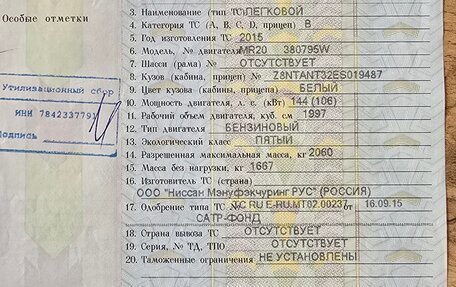 Особые отметки
Утилизационный сбор
ИНН 7842337791
Подпись
3. Наименование (тип ТС) ЛЕГКОВОЙ
4. Категория ТС (A, B, C, D, прицеп) B
5. Год изготовления ТС 2015
6. Модель, № двигателя MR20 380795W
7. Шасси (рама) № ОТСУТСТВУЕТ
8. Кузов (кабина, прицеп) № Z8NTANT32ES019487
9. Цвет кузова (кабины, прицепа) БЕЛЫЙ
10. Мощность двигателя, л. с. (кВт) 144 (106)
11. Рабочий объем двигателя, куб. см 1997
12. Тип двигателя БЕНЗИНОВЫЙ
13. Экологический класс ПЯТЫЙ
14. Разрешенная максимальная масса, кг 2060
15. Масса без нагрузки, кг 1667
16. Изготовитель ТС (страна)
ООО "Ниссан Мэнуфэкчуринг РУС" (РОССИЯ)
17. Одобрение типа ТС № ЕС RU E-RU.МТ02.00237 от 16.09.15
САТР-ФОНД
18. Страна вывоза ТС ОТСУТСТВУЕТ
19. Серия, № ТД, ТПО ОТСУТСТВУЕТ
20. Таможенные ограничения НЕ УСТАНОВЛЕНЫ